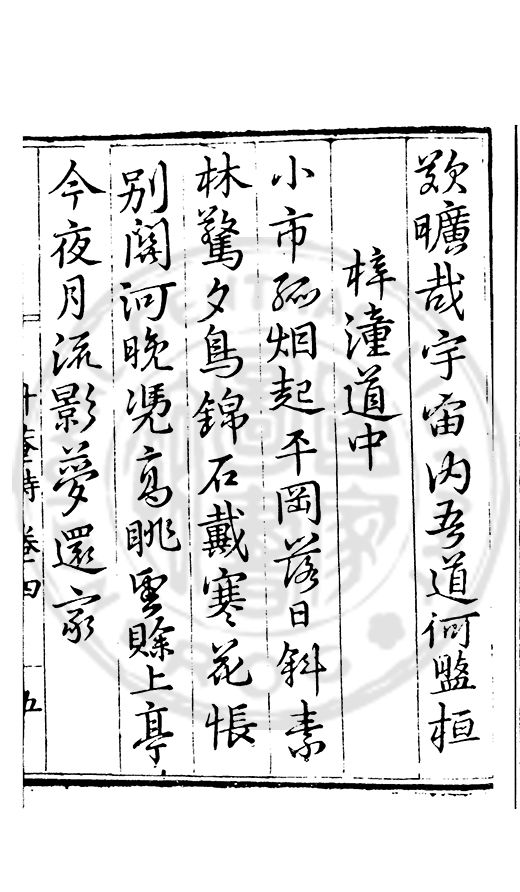 歎曠哉宇宙内吾道何盤桓
梓潼道中
小市孤烟起平岡落日斜素
林驚夕鳥錦石戴寒花悵
别關河晚凴高眺望賒上亭
今夜月流影夢還家
升菴詩 卷四
五